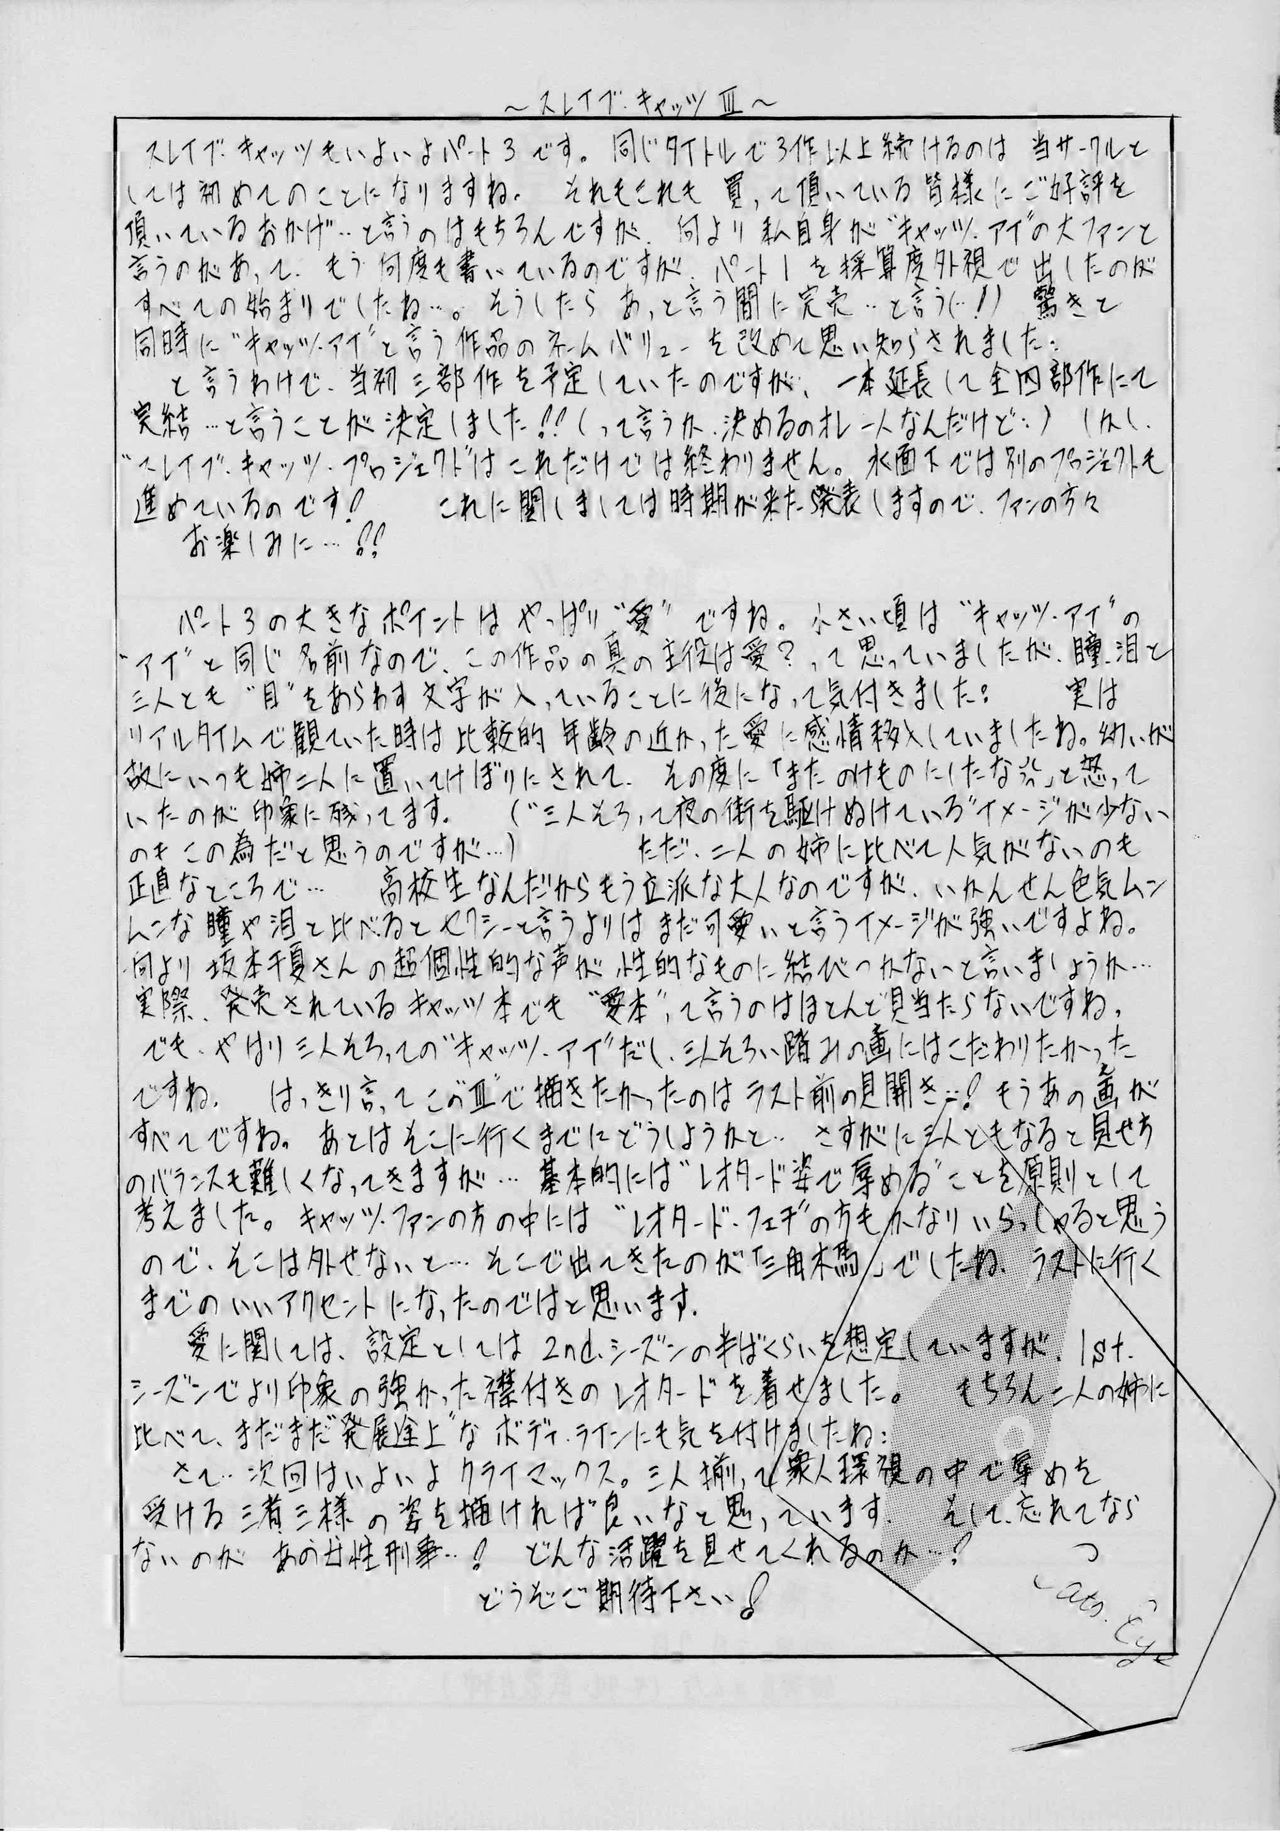 ～スレイブ・キャッツ Ⅲ～
スレイブ・キャッツもいよいよパート3です。同じタイトルで3作以上続けるのは当サークルと
しては初めてのことになりますね。それもこれも買って頂いている皆様にご好評を
頂いているおかげ…と言うのはもちろんですが、何より私自身が“キャッツ・アイ”の大ファンと
言うのがあって、もう何度も書いているのですが、パート1を採算度外視で出したのが
すべての始まりでしたね…。そうしたらあっと言う間に完売…と言う(…!) 驚きと
同時に“キャッツ・アイ”と言う作品のネームバリューを改めて思い知らされました…
と言うわけで、当初三部作を予定していたのですが、一本延長して全四部作にて
完結…と言うことが決定しました!!(って言うか、決めるのオレ一人なんだけど…) しかし、
“スレイブ・キャッツ・プロジェクト”はこれだけでは終わりません。水面下では別のプロジェクトも
進めているのです! これに関しましては時期が来たら発表しますので、ファンの方々
お楽しみに…!!
パート3の大きなポイントはやっぱり“愛”ですね。小さい頃は“キャッツ・アイ”の
“アイ”と同じ名前なので、この作品の真の主役は愛?って思っていましたが、瞳、泪と
三人とも“目”をあらわす文字が入っていることに後になって気付きました… 実は
リアルタイムで観ていた時は比較的年齢の近かった愛に感情移入していましたね。幼いが
故にいつも姉二人に置いてけぼりにされて、その度に「またのけものにしたな」と怒って
いたのが印象に残ってます。(“三人そろって夜の街を駆けぬけている”イメージが少ない
のもこの為だと思うのですが…) ただ、二人の姉に比べて人気がないのも
正直なところで… 高校生なんだからもう立派な大人なのですが、いかんせん色気ムン
ムンな瞳や泪と比べるとセクシーと言うよりはまだ可愛いと言うイメージが強いですよね。
何より坂本千夏さんの超個性的な声が性的なものに結びつかないと言いましょうか…
実際、発売されているキャッツ本でも“愛本”って言うのはほとんど見当たらないですね。
でも、やはり三人そろっての“キャッツ・アイ”だし、三人そろい踏みの画にはこだわりたかった
ですね。はっきり言ってこの“Ⅲ”で描きたかったのはラスト前の見開き…! もうあの画が
すべてですね。あとはそこに行くまでにどうしようかと… さすがに三人ともなると見せ方
のバランスも難しくなってきますが… 基本的には“レオタード姿で辱める”ことを原則として
考えました。キャッツ・ファンの方の中には“レオタード・フェチ”の方もかなりいらっしゃると思う
ので、そこは外せないと… そこで出てきたのが「三角木馬」でしたね、ラストに行く
までのいいアクセントになったのではと思います。
愛に関しては、設定としては2nd.シーズンの半ばくらいを想定していますが、1st.
シーズンでより印象の強かった襟付きのレオタードを着せました。もちろん二人の姉に
比べて、まだまだ“発展途上”なボディ・ラインにも気を付けましたね…
さて…次回はいよいよクライマックス。三人揃って衆人環視の中で辱めを
受ける三者三様の姿を描ければ良いなと思っています。そして、忘れてなら
ないのがあの女性刑事…! どんな活躍を見せてくれるのか…?
どうぞご期待下さい!
Cats・Eye